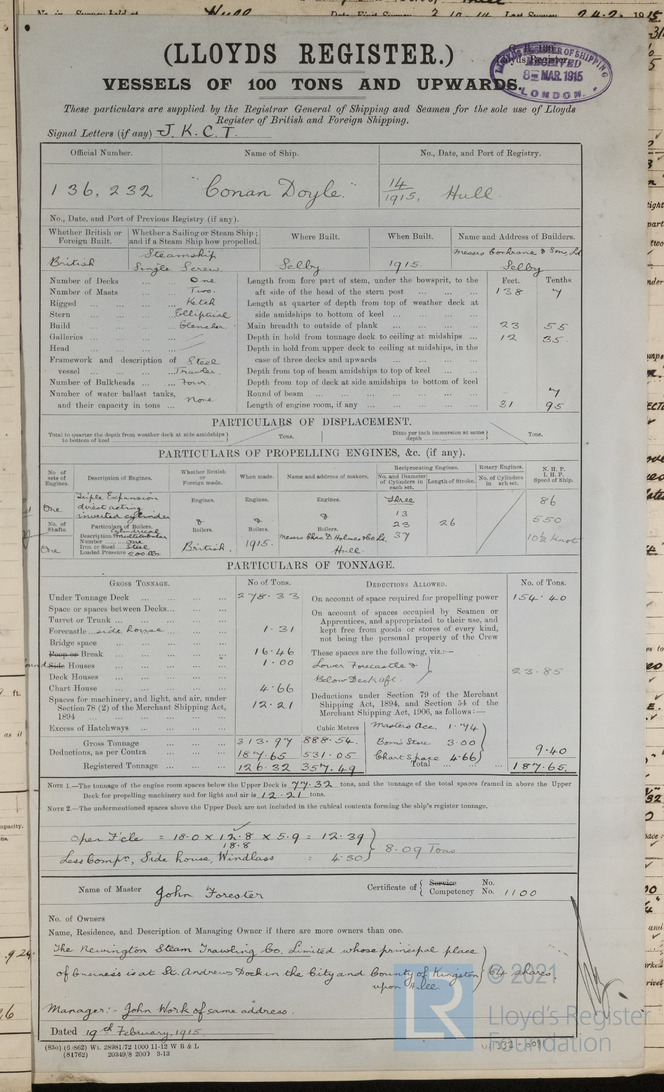 (LLOYDS REGISTER.)
VESSELS OF 100 TONS AND UPWARDS.
LLOYD'S REGISTER OF SHIPPING
RECEIVED
8 - MAR. 1915
LONDON.
These particulars are supplied by the Registrar General of Shipping and Seamen for the sole use of Lloyds
Register of British and Foreign Shipping.
Signal Letters (if any) J. K. C. T.
Official Number. Name of Ship. No., Date, and Port of Registry.
136,232 "Conan Doyle." 14/1915, Hull.
No., Date, and Port of Previous Registry (if any).
Whether British or Foreign Built. Whether a Sailing or Steam Ship; and if a Steam Ship how propelled. Where Built. When Built. Name and Address of Builders.
British Steamship Single Screw Selby 1915. Messrs Cochrane & Sons, Ld Selby
Number of Decks ... ... One Length from fore part of stem, under the bowsprit, to the Feet. Tenths
Number of Masts ... ... Two. aft side of the head of the stern post ... ... ... 138 7
Rigged ... ... ... Ketch Length at quarter of depth from top of weather deck at
Stern ... ... ... Elliptical side amidships to bottom of keel ... ... ... ...
Build ... ... ... Clencher Main breadth to outside of plank ... ... ... ... 23 55
Galleries ... ... ... Depth in hold from tonnage deck to ceiling at midships ... 12 35
Head ... ... ... Depth in hold from upper deck to ceiling at midships, in the
Framework and description of Steel case of three decks and upwards ... ... ...
vessel ... ... ... Trawler. Depth from top of beam amidships to top of keel ... ...
Number of Bulkheads ... ... Four Depth from top of deck at side amidships to bottom of keel
Number of water ballast tanks, Round of beam ... ... ... ... 7
and their capacity in tons ... None Length of engine room, if any ... ... ... ... 31 95
PARTICULARS OF DISPLACEMENT.
Total to quarter the depth from weather deck at side amidships to bottom of keel Tons. Ditto per inch immersion at same depth Tons.
PARTICULARS OF PROPELLING ENGINES, &c. (if any).
No. of sets of Engines. Description of Engines. Whether British or Foreign made. When made. Name and address of makers. Reciprocating Engines. Rotary Engines. N. H. P. I. H. P. Speed of Ship.
No. and Diameter of Cylinders in each set. Length of Stroke. No. of Cylinders in each set.
One Triple Expansion direct acting inverted cylinder Engines. Engines. Engines. Three 86
13
No. of Shafts. Particulars of Boilers. & & & 23 26 550
Description Cylindrical multitubular Boilers. Boilers. Boilers. 37 10½ knots
Number One
One Iron or Steel Steel British. 1915. Messrs Chas. D. Holmes & Co. Ld. Hull
Loaded Pressure 200 lbs
PARTICULARS OF TONNAGE.
GROSS TONNAGE. No of Tons. DEDUCTIONS ALLOWED. No. of Tons.
Under Tonnage Deck ... ... ... ... 278.33 On account of space required for propelling power 154.40
Space or spaces between Decks... ... ... On account of spaces occupied by Seamen or
Turret or Trunk ... ... ... ... Apprentices, and appropriated to their use, and
Forecastle side house ... ... ... 1.31 kept free from goods or stores of every kind,
Bridge space ... ... ... not being the personal property of the Crew
Poop or Break ... ... ... 16.46 These spaces are the following, viz.:—
Round Side Houses ... ... ... 1.00 Lower Forecastle &
Deck Houses ... ... ... Below Deck aft. 23.85
Chart House ... ... ... 4.66
Spaces for machinery, and light, and air, under Deductions under Section 79 of the Merchant
Section 78 (2) of the Merchant Shipping Act, 12.21 Shipping Act, 1894, and Section 54 of the
1894 ... ... ... Merchant Shipping Act, 1906, as follows:—
Excess of Hatchways ... ... ... Cubic Metres Master's Acc. 1.74
Gross Tonnage ... ... ... 313.97 888.54. Bosn's Store 3.00
Deductions, as per Contra ... ... ... 187.65 531.05 Chart Space 4.66 9.40
Registered Tonnage ... ... ... 126.32 357.49 Total ... ... 187.65.
NOTE 1.—The tonnage of the engine room spaces below the Upper Deck is 77.32 tons, and the tonnage of the total spaces framed in above the Upper
Deck for propelling machinery and for light and air is 12.21 tons.
NOTE 2.—The undermentioned spaces above the Upper Deck are not included in the cubical contents forming the ship's register tonnage.
Open F'cle = 18.0 x 12.8 x 5.9 = 12.39
18.8 8.09 Tons
Less Compn, Side house, Windlass = 4.30
Name of Master John Forester Certificate of Service Competency No. No. 1100
No. of Owners
Name, Residence, and Description of Managing Owner if there are more owners than one.
The Newington Steam Trawling Co. Limited whose principal place
of business is at St. Andrews Dock in the City and County of Kingston 64 shares.
upon Hull
Manager:- John Work of same address.
Dated 19th February, 1915
(83a) (6 862) Wt. 28981/72 1000 11-12 W B & L
(81762) 20349/8 2000 3-13
© 2021
LR
Lloyd's Register
Foundation